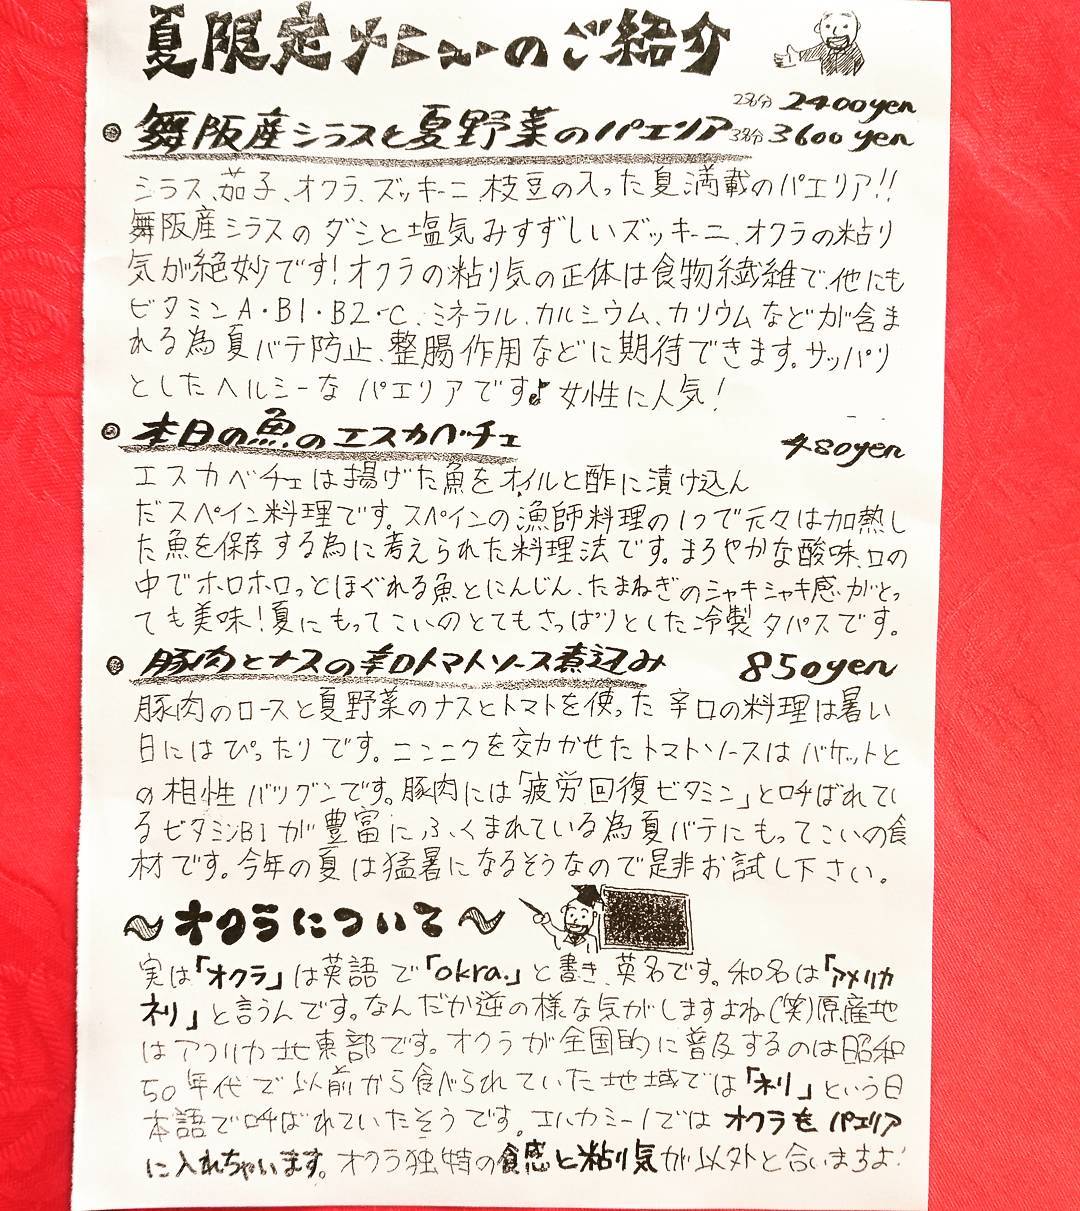 夏限定メニューのご紹介
2名分 2400yen
●舞阪産シラスと夏野菜のパエリア 3名分 3600yen
シラス、茄子、オクラ、ズッキーニ、枝豆の入った夏満載のパエリア!!
舞阪産シラスのダシと塩気、みずみずしいズッキーニ、オクラの粘り
気が絶妙です!オクラの粘り気の正体は食物繊維で、他にも
ビタミンA・B1・B2・C、ミネラル、カルシウム、カリウムなどが含ま
れる為夏バテ防止、整腸作用などに期待できます。サッパリ
としたヘルシーなパエリアです♪女性に人気!
●本日の魚のエスカベッチェ 480yen
エスカベチェは揚げた魚をオイルと酢に漬け込ん
だスペイン料理です。スペインの漁師料理の1つで元々は加熱し
た魚を保存する為に考えられた料理法です。まろやかな酸味、口の
中でホロホロっとほぐれる魚とにんじん、たまねぎのシャキシャキ感がとっ
ても美味!夏にもってこいのとてもさっぱりとした冷製タパスです。
●豚肉とナスの辛口トマトソース煮込み 850yen
豚肉のロースと夏野菜のナスとトマトを使った辛口の料理は暑い
日にはぴったりです。ニンニクを効かせたトマトソースはバケットと
の相性バツグンです。豚肉には「疲労回復ビタミン」と呼ばれてい
るビタミンB1が豊富にふくまれている為夏バテにもってこいの食
材です。今年の夏は猛暑になるそうなので是非お試し下さい。
～オクラについて～
実は「オクラ」は英語で「okra.」と書き、英名です。和名は「アメリカ
ネリ」と言うんです。なんだか逆の様な気がしますよね(笑)原産地
はアフリカ北東部です。オクラが全国的に普及するのは昭和
50年代で以前から食べられていた地域では「ネリ」という日
本語で呼ばれていたそうです。エルカミーノではオクラをパエリア
に入れちゃいます。オクラ独特の食感と粘り気が以外と合いますよ!